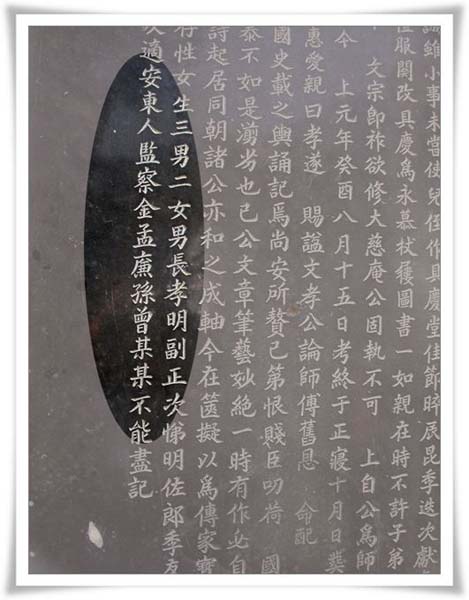 雖小事未嘗使兒侄作具慶堂佳節晬辰昆季迭次獻
服闋改具慶爲永慕栻穫圖書一如親在時不許子弟
文宗卽祚欲修大慈庵公固執不可 上自公爲師
今 上元年癸酉八月十五日考終于正寢十月日葬
惠愛親曰孝遂 賜諡文孝公論師傅舊恩 命配
國史載之輿誦記焉尚安所贅已第恨賤臣叨荷 國
泰不如是湔劣也已公文章筆藝妙絶一時有作必自
詩起居同朝諸公亦和之成軸今在篋擬以爲傳家寶
存性女 生三男二女男長孝明副正次悌明佐郎季友
次適安東人監察金孟廉孫曾某某不能盡記